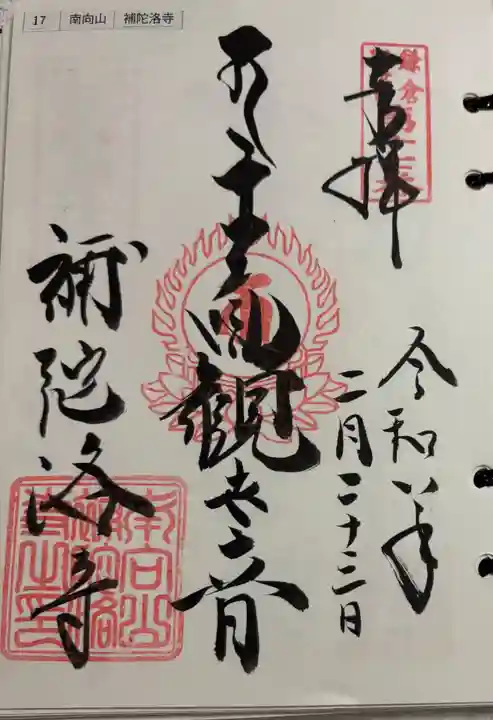 17 南向山 補陀洛寺
奉拝
令和八年
二月二十三日
十一面観世音
補陀洛寺
南向山
補陀洛
寺之印